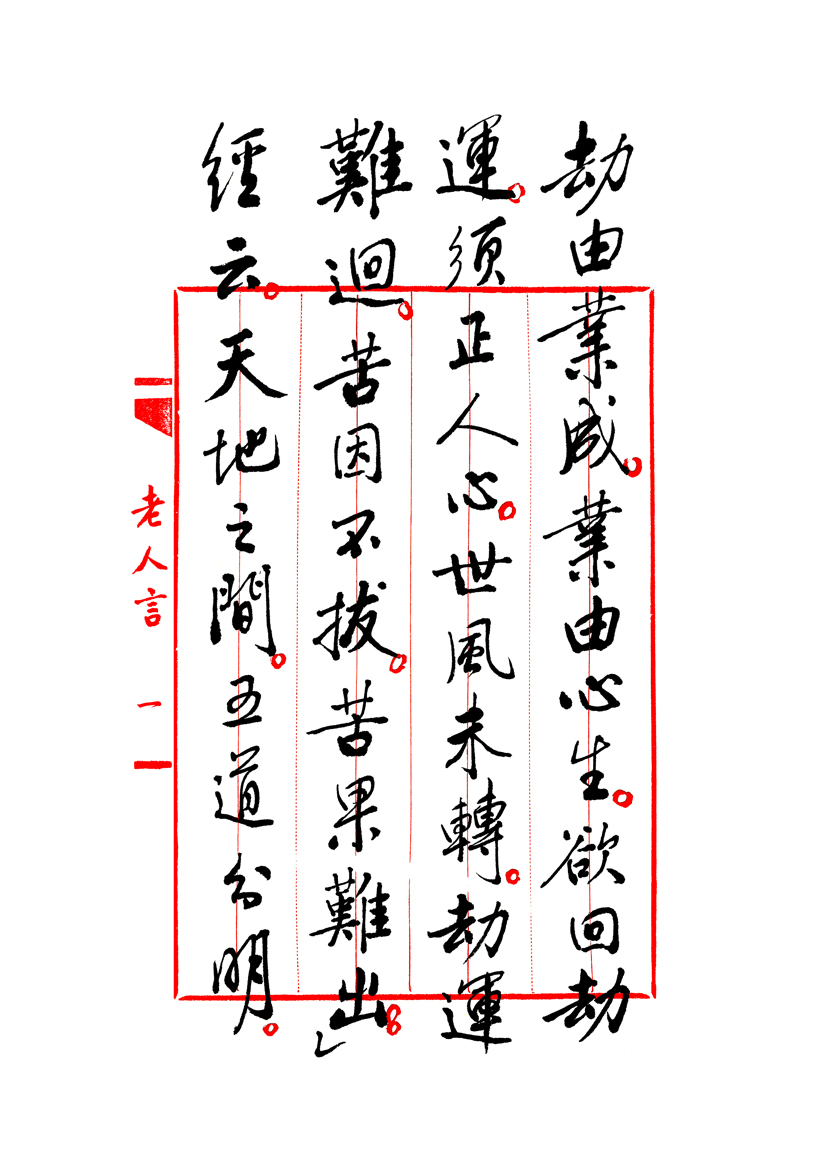 劫由業成。業由心生。欲回劫
運。須正人心。世風未轉。劫運
難迴。苦因不拔。苦果難出。
經云。天地之間。五道分明。
老人言 一